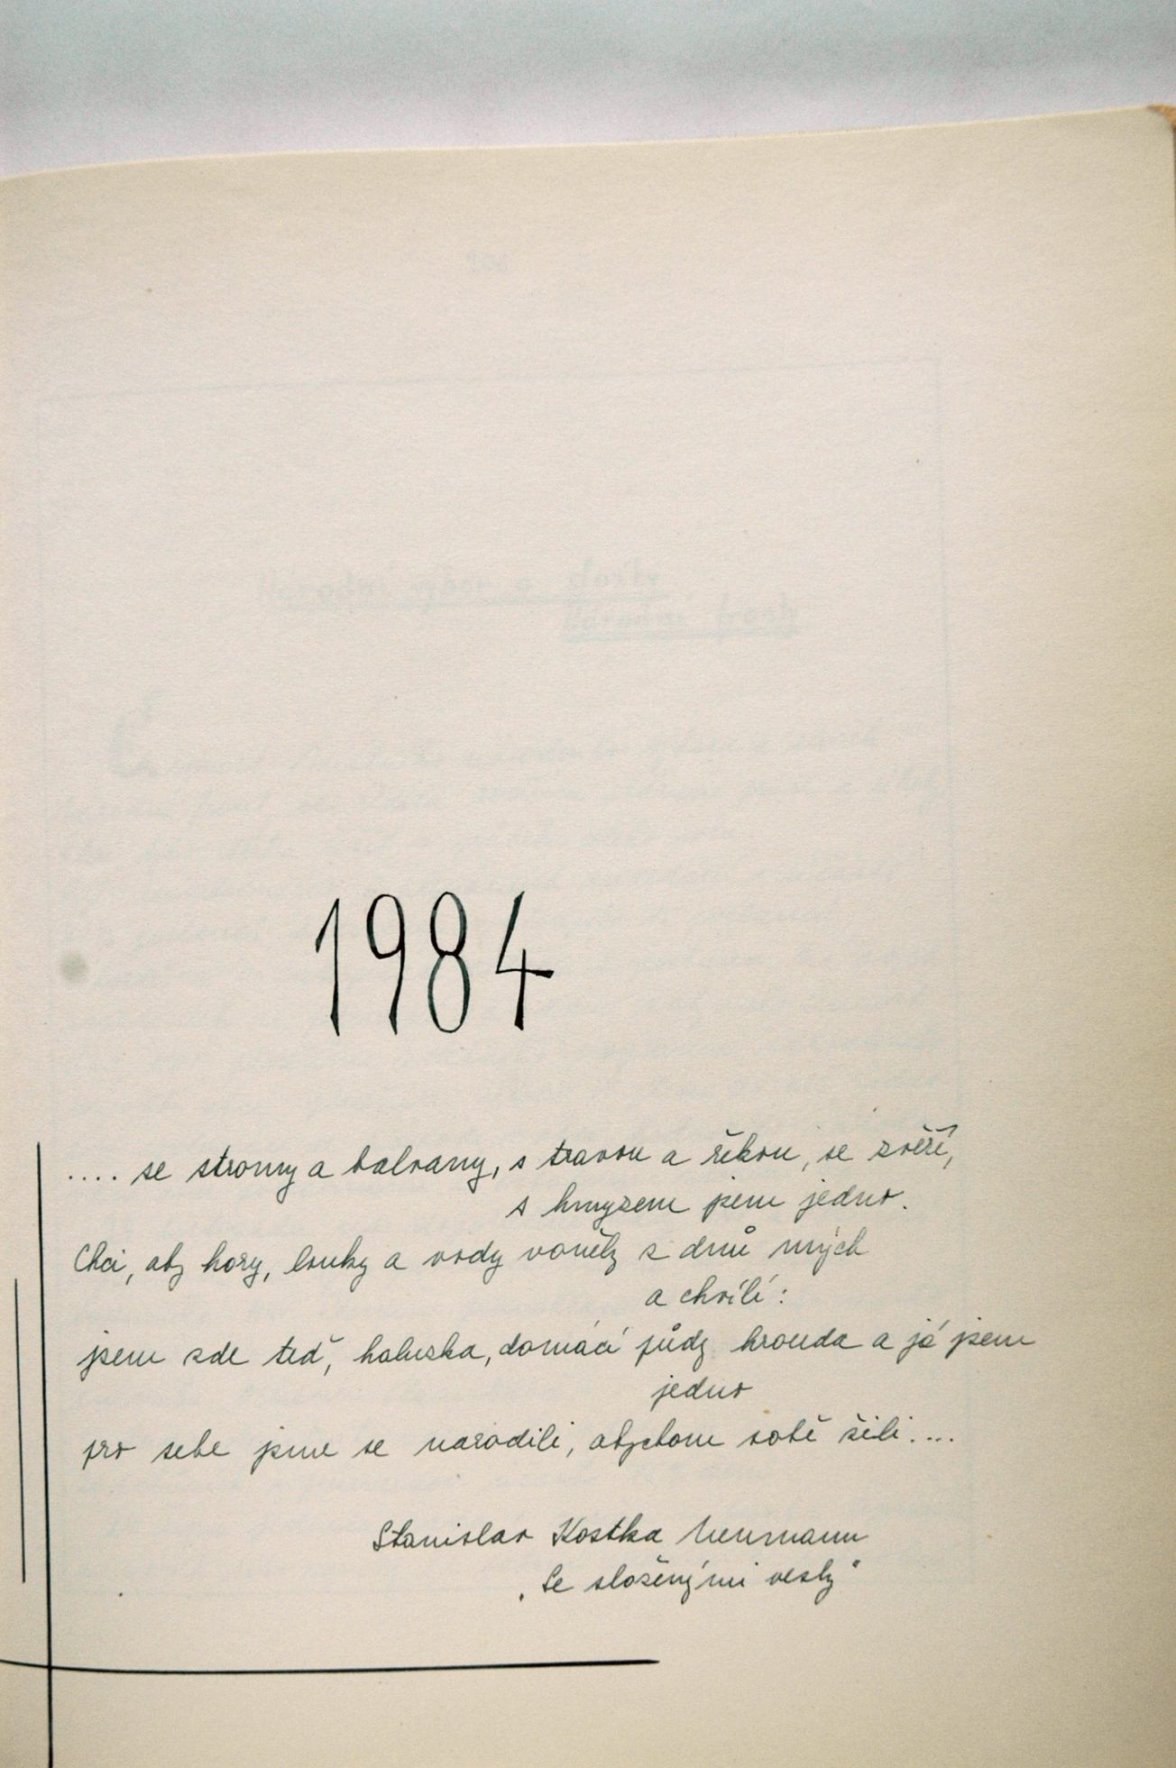 1984
.... se stromy a balvany, s travou a řekou, se zvěří,
s hmyzem jsem jedno.
Chci, aby hory, louky a vody voněly z dnů mých
a chvílí:
jsem zde teď, haluzka, domácí půdy hrouda a já jsem
jedno
pro sebe jsme se narodili, abychom sobě žili....
Stanislav Kostka Neumann
„Se složenými vesly"